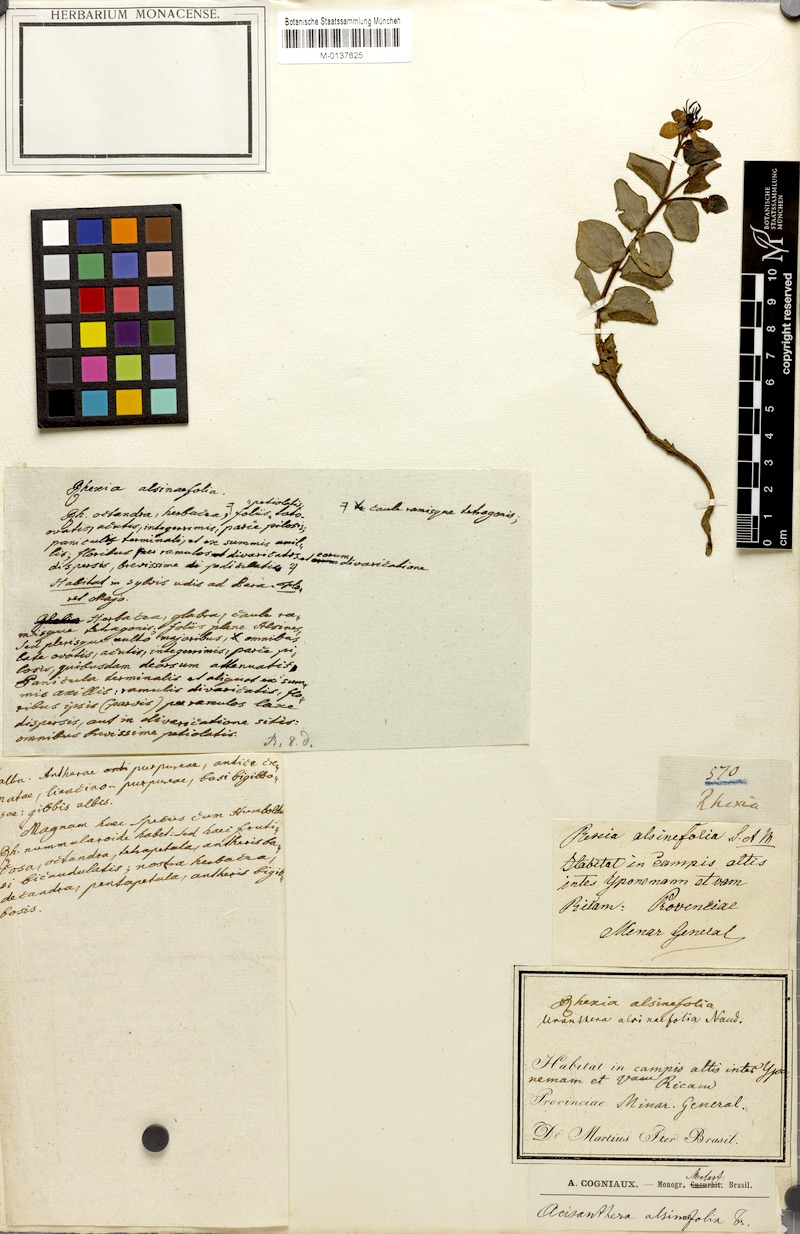 HERBARIUM MONACENSE.
Botanische Staatssammlung München
M-0137625
BOTANISCHE
STAATSSAMMLUNG
MÜNCHEN
copyright reserved
0 1 2 3 4 5 6 7 8 9 10
cm
Rhexia alsinaefolia.
Rh. octandra, herbacea, foliis petiolatis, lato-
ovatis, acutis, integerrimis, parce pilosis;
paniculis terminali, et ex summis axil-
lis, floribus per ramulos divaricatos
dispersis, brevissime pedicellatis et eorum divaricatione
Habitat in sylvis udis ad Para. Flo-
ret Majo.
caule ramisque tetragonis;
Herbacea, glabra, caule ra-
misque tetragonis, foliis plane Alsines,
sed plerisque multo majoribus, omnibus
late ovatis, acutis, integerrimis, parce pi-
losis, quibusdam deorsum attenuatis,
Panicula terminalis et aliquot ex sum-
mis axillis: ramulis divaricatis, flo-
ribus ipsis (parvis) per ramulos laxe
dispersis, aut in divaricatione sitis:
omnibus brevissime petiolatis.
alba. Antherae purpureae, antice cre-
natae, lilacino-purpureae, basi bigibbo-
sae: gibbis albis.
Magnam haec species cum Humboldt
Rh. nummularoide habet. Sed haec fruti-
cosa, octandra, tetrapetala, antheris ba-
si bicaudulatis; nostra herbacea,
decandra, pentapetala, antheris bigib-
bosis.
570
Rhexia
Rexia alsinefolia S. A M
Habitat in Campis altis
inter Yponemam et vam
Ricam: Provinciae
Minar General
Rhexia alsinefolia
Uranthera alsinaefolia Naud.
Habitat in campis altis inter Ypo
nemam et Vam Ricam
Provinciae Minar. General.
Dr Martius Iter Brasil.
A. COGNIAUX. — Monogr. Cucurbit. Melast. Brasil.
Acisanthera alsinaefolia Tr.